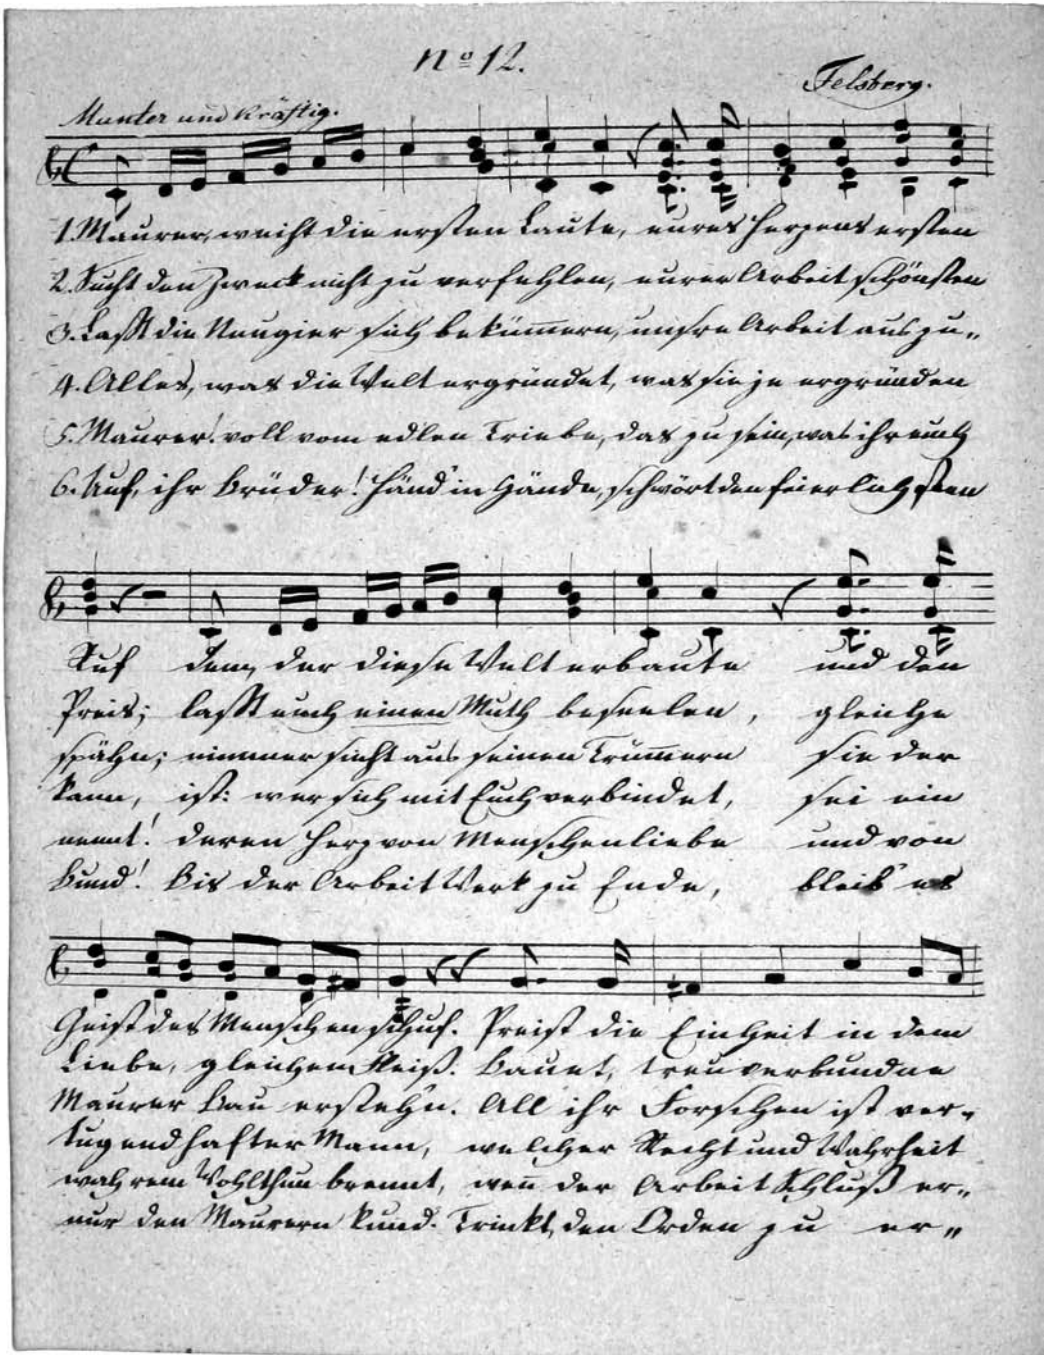 No 12.
Felsberg.
Munter und kräftig.
1. Maurer, weiht die ersten Laute, eures Herzens ersten
2. Sucht den Zweck nicht zu verfehlen, eurer Arbeit schönsten
3. Laßt die Neugier sich bekümern, unsre Arbeit auszu„
4. Alles, was die Welt ergründet, was sie je ergründen
5. Maurer! voll vom edlen Triebe, das zu sein, was ihr euch
6. Auf, ihr Brüder! Händ' in Hände, schwört den feierlichsten
Ruf dem, der diese Welt erbaute und den
Preis; laßt euch einen Muth beseelen, gleiche
spähn; nimmer sieht aus seinen Trümern sie der
kann, ist: wer sich mit Euch verbindet, sei ein
nennt! deren Herz von Menschenliebe und von
Bund! Bis der Arbeit Werk zu Ende, bleib' es
Geist des Menschen schuf. Preist die Einheit in dem
Liebe, gleichem Fleiß. Bauet, treu verbundne
Maurer Bau erstehn. All ihr Forschen ist ver„
tugendhafter Mann, welcher Recht und Wahrheit
wahrem Wohlthun brennt, wen der Arbeit Schluß er„
nur den Maurern kund. Trinkt, den Orden zu er„